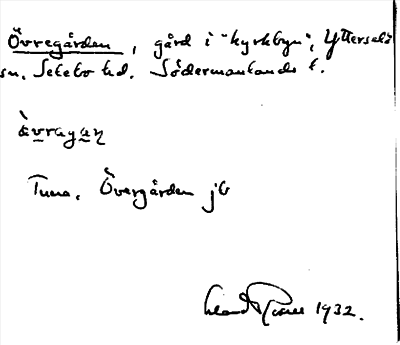 Övregården, gård i "kyrkbyn", Ytterselö
sn. Selebo hd. Södermanlands l.
ö̀vragaṇ
Tuna. Övergården jb
1932.